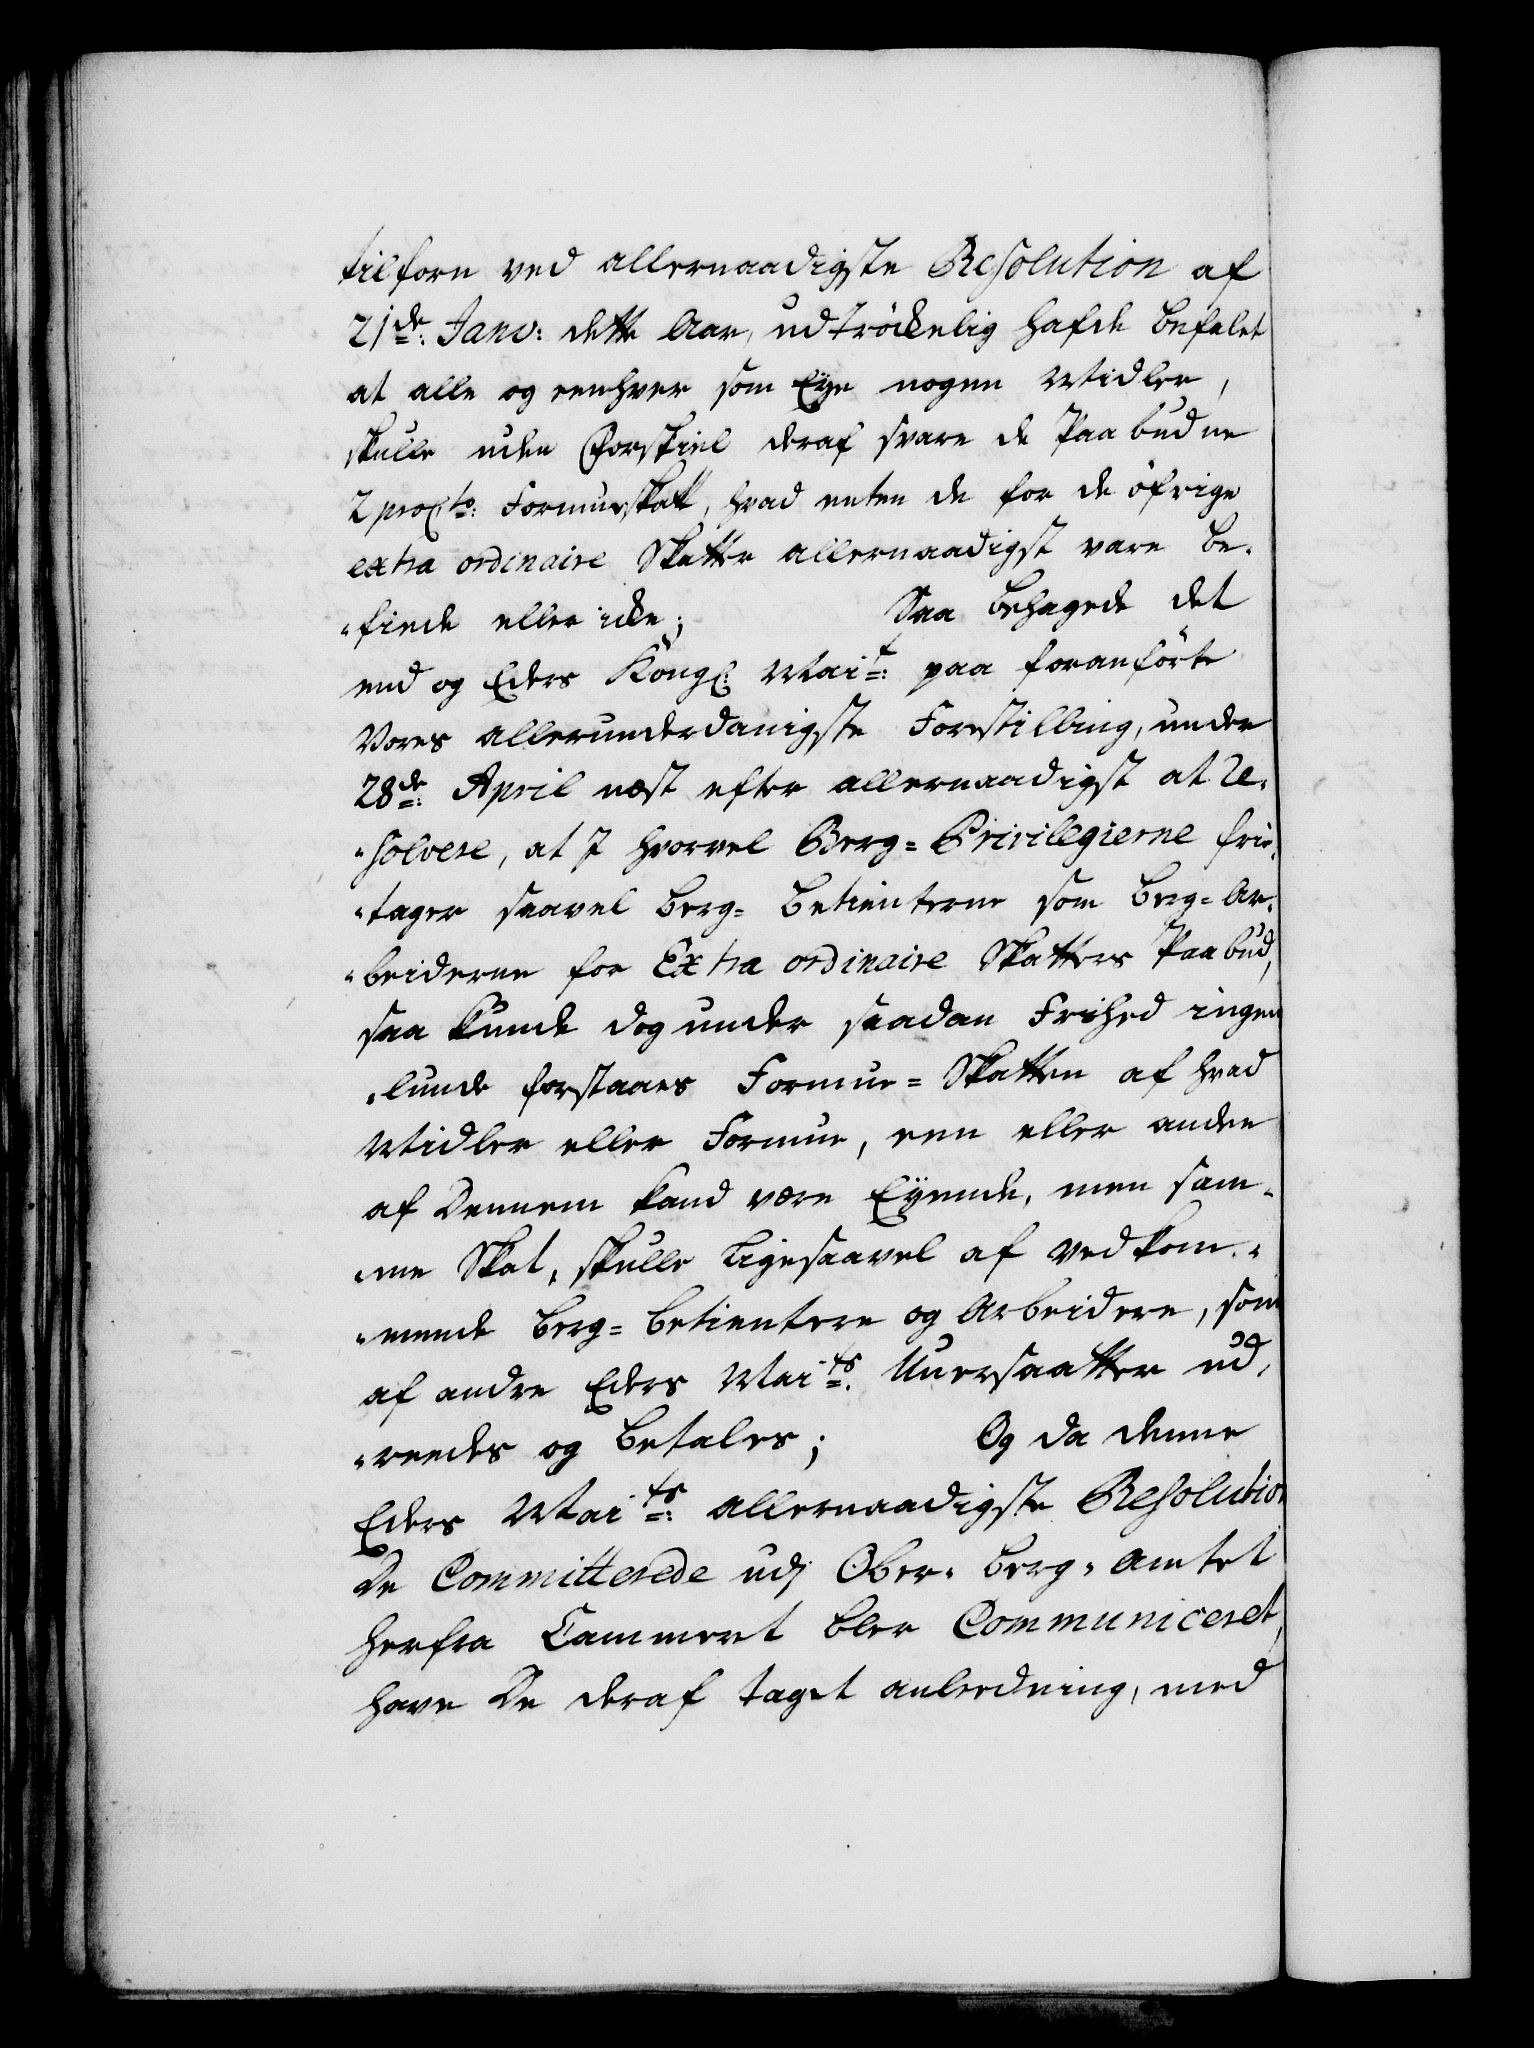 tilforn ved allernaadigste Resolution af
21de: Janv: dette Aar, udtrökkelig hafde befalet
at alle og eenhver som Eye nogen Midler,
skulle uden Forskiel deraf svare de Paabudne
2 proCto: Formueskatt, hvad enten de for de öfrige
extra ordinaire Skatter allernaadigst vare be-
-friede eller icke; Saa behagede det
end og Eders Kongl: Mait: paa foranförte
Vores allerunderdanigste Forestilling, under
28de: April næst efter allernaadigst at re-
-solvere, at ihvorvel Berg-Privilegierne frie-
-tager saavel Berg-Betienterne som Berg-Ar-
-beiderne for Extra ordinaire Skatters Paabud,
saa kunde dog under saadan Frihed ingen
-lunde forstaaes Formue-Skatten af hvad
Midler eller Formue, een eller anden
af Dennem kand være Eyende, men sam-
-me Skat, skulle ligesaavel af vedkom-
-mende Berg-Betientere og Arbeidere, som
af andre Eders Maits: Undersaatter ud-
-reedes og betales; Og da denne
Eders Maits: allernaadigste Resolution
De Committerede udj Ober-Berg-Amtet
herfra Cammeret blev Communiceret,
have De deraf taget anleedning, med